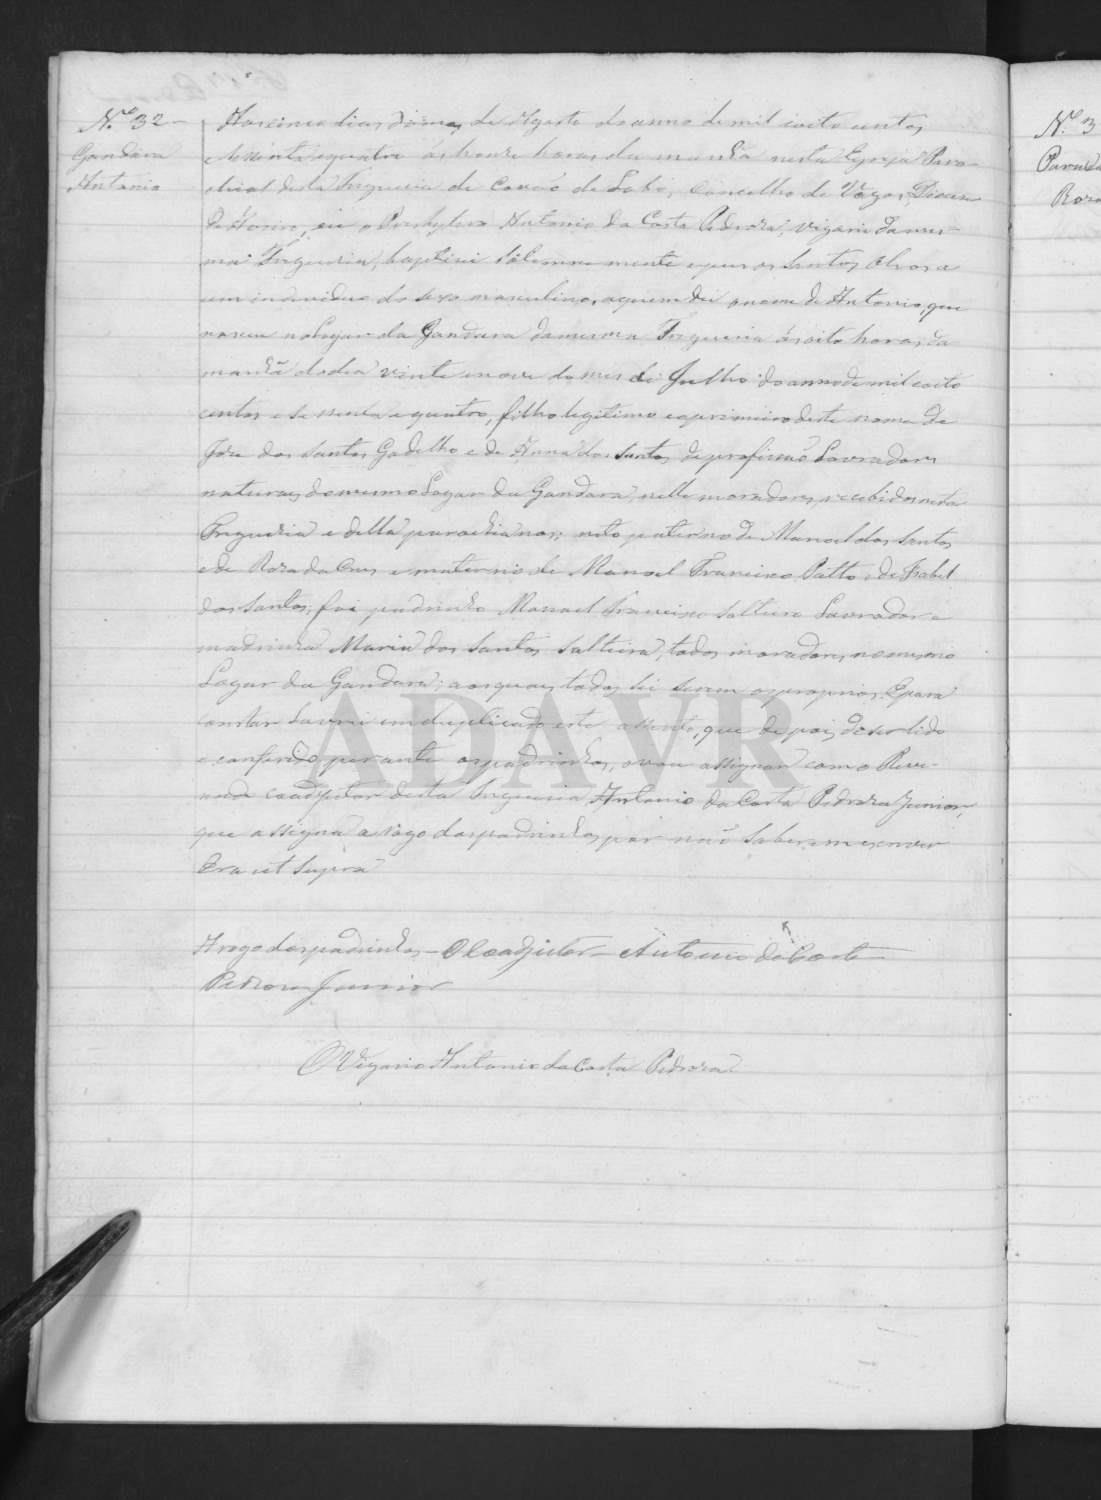 N.º 32 -
Gandara
Antonio
Aos cinco dias do mez de Agosto do anno de mil oito centos
e sessenta e quatro ás honze horas da manhã nesta Egreja Paro-
chial desta Freguesia de Covão do Lobo, Concelho de Vagos, Diocese
de Aveiro, eu o Presbytero Antonio da Costa Pedroza, Vigario da mes-
ma Freguesia, baptisei solemnemente e puz os Santos Oleos a
um individuo do sexo masculino, a quem dei o nome de Antonio, que
nasceu no Lugar da Gandara da mesma Freguesia ás oito horas da
manhã do dia vinte e nove do mes de Julho do anno de mil oito
centos e sessenta e quatro, filho legitimo e o primeiro deste nome de
Joze dos Santos Gadelho e de Anna dos Santos de profissão Lavradores
naturaes do mesmo Lugar da Gandara, nelle moradores, recebidos nesta
Freguesia e della parochianos; neto paterno de Manoel dos Santos
e de Roza da Cruz e materno de Manoel Francisco Patto e de Isabel
dos Santos; foi padrinho Manoel Francisco Salteiro Lavrador e
madrinha Maria dos Santos Salteira, todos moradores no mesmo
Lugar da Gandara; aos quaes todos sei serem os proprios. E para
constar Lavrei em duplicado este assento, que depois de ser lido
e conferido perante os padrinhos, o vou assignar com o Reve-
rendo coadjutor desta Freguesia Antonio da Costa Pedroza Junior,
que assigna a rogo dos padrinhos por não saberem escrever
Era ut supra
A rogo dos padrinhos - O Coadjutor - Antonio da Costa
Pedroza Junior
O Vigario Antonio da Costa Pedroza
ADAVR
N.º 3
Roza